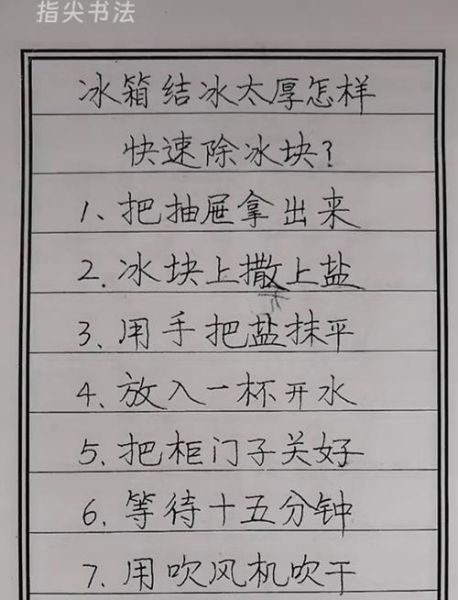 指尖书法
冰箱结冰太厚怎样
快速除冰块?
1、把抽屉拿出来
2、冰块上撒上盐
3、用手把盐抹平
4、放入一杯开水
5、把柜门子关好
6、等待十五分钟
7、用吹风机吹干